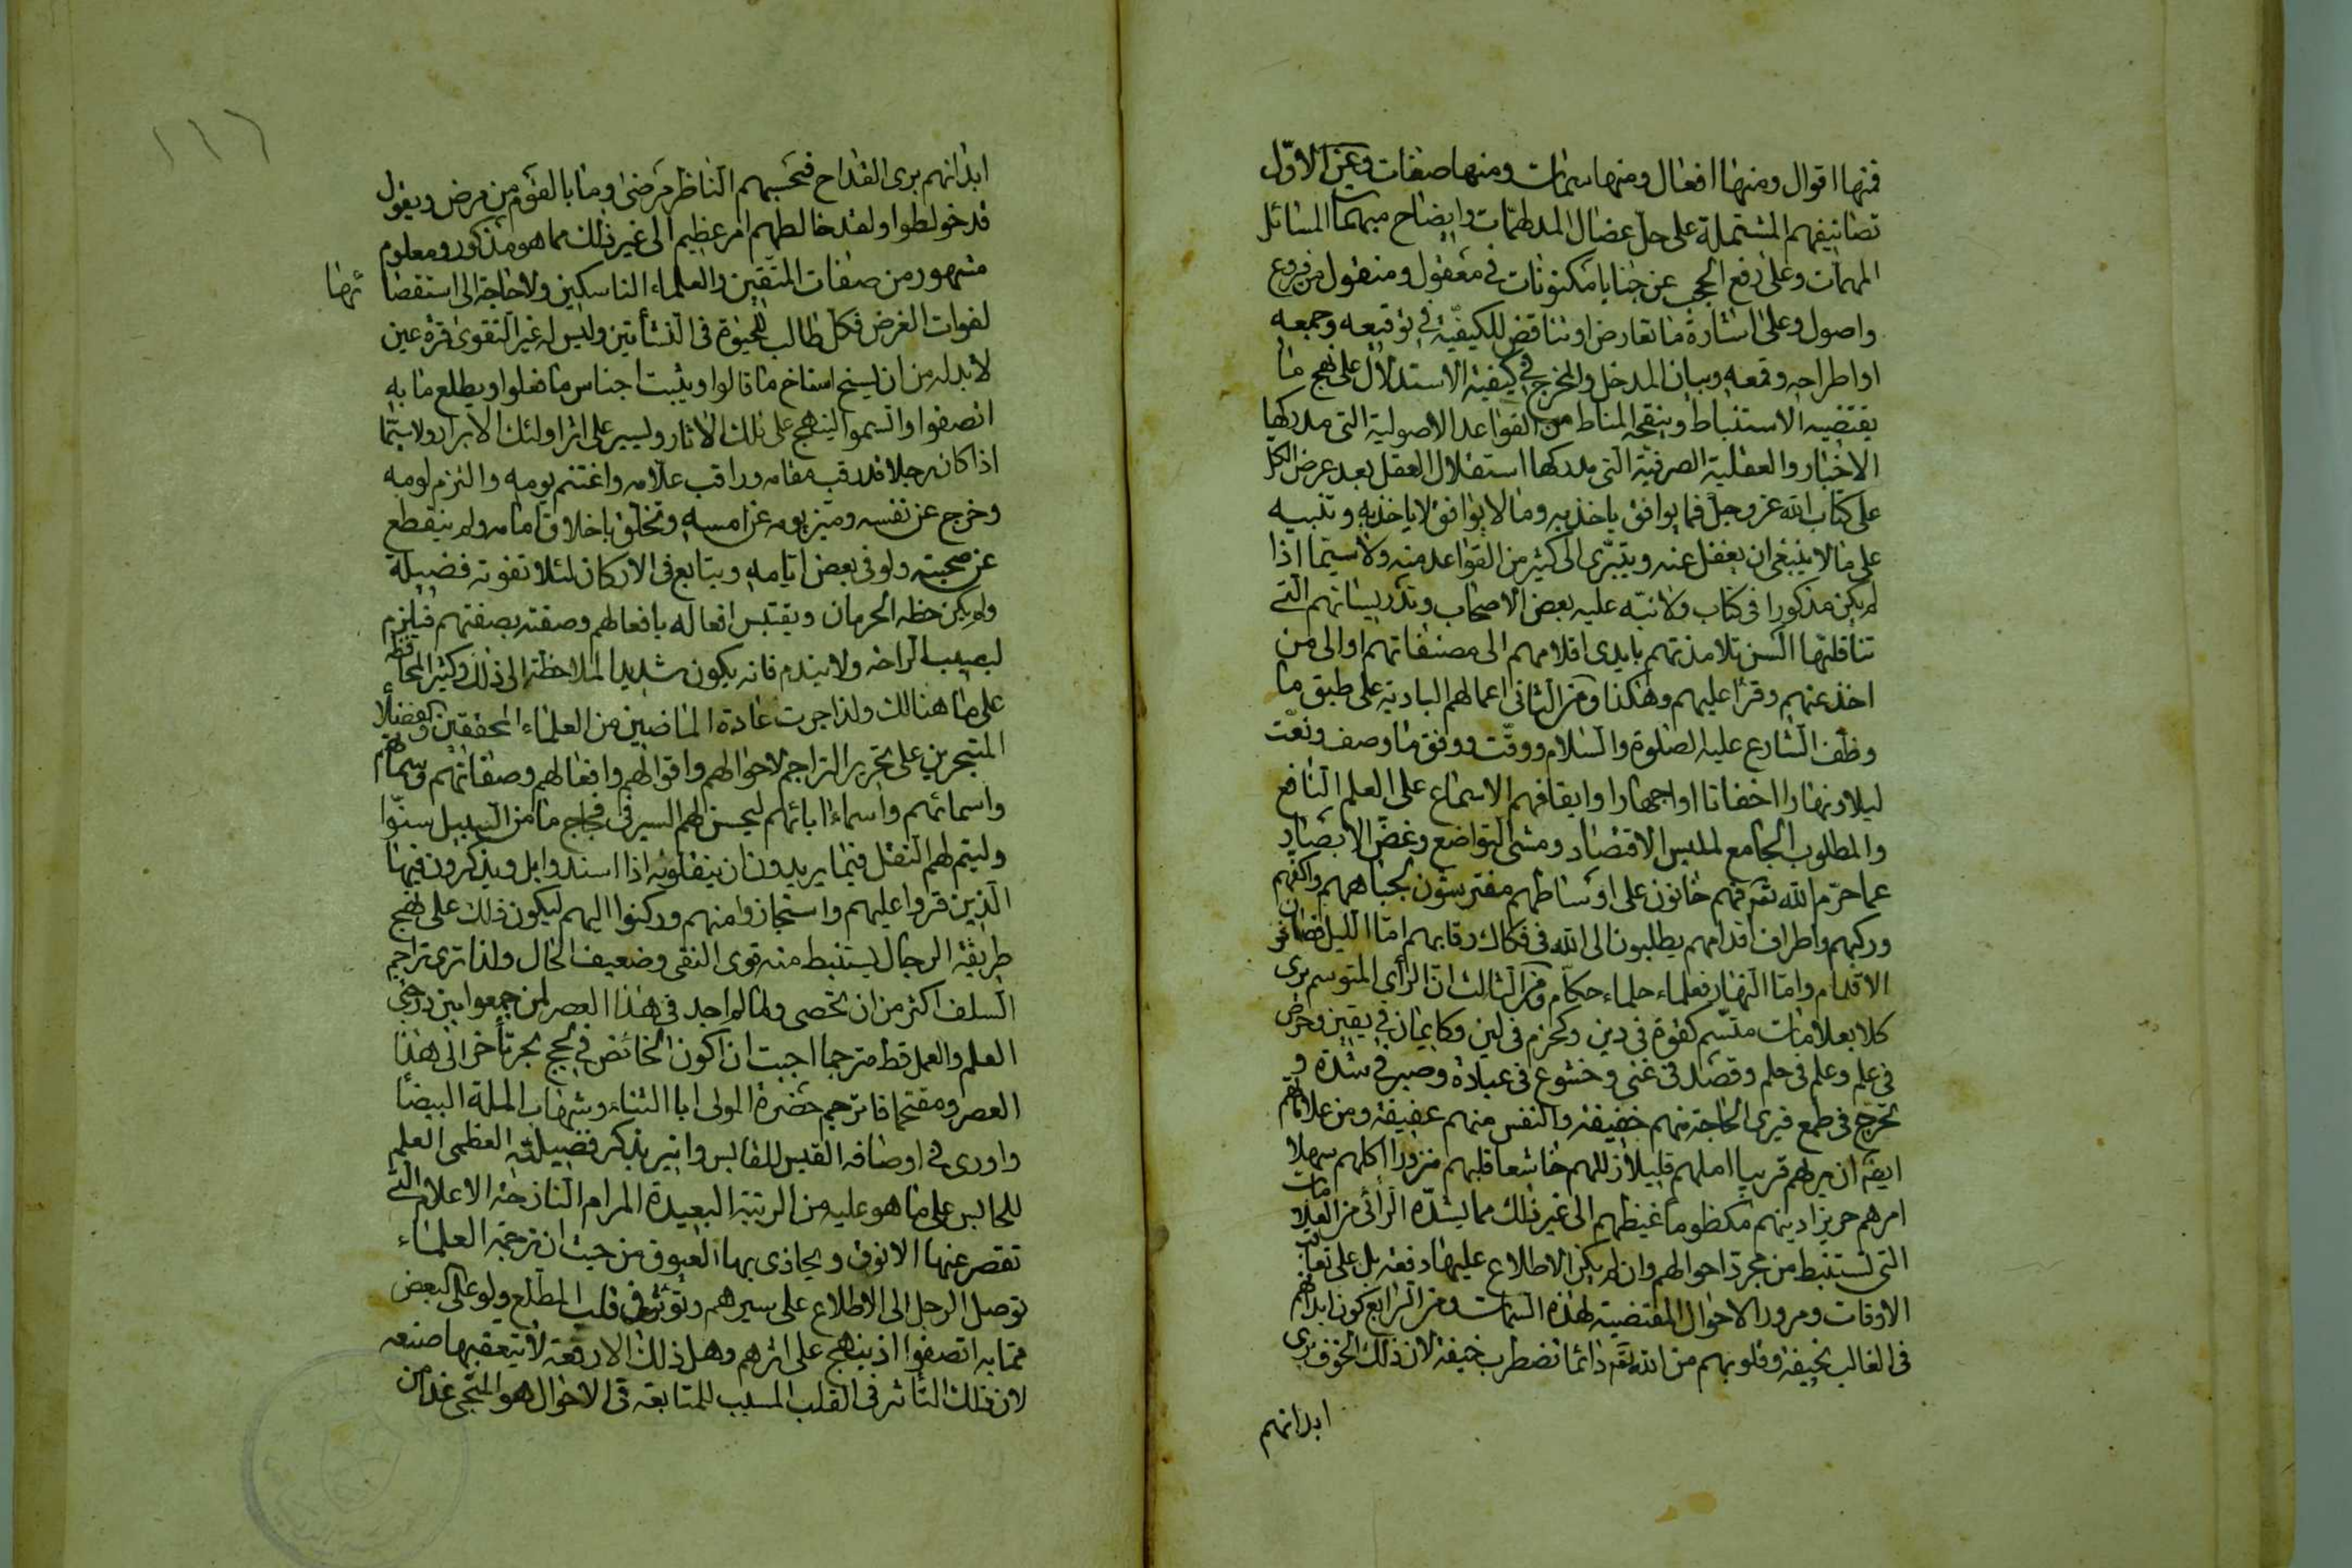 فمنها اقوال ومنها افعال ومنها سمات ومنها صفات وعن الاوّل
تصانيفهم المشتملة على حل عضال المدلهمّات وايضاح مبهمات المسائل
المهمات وعلى رفع الحجب عن خبايا مكنونات في معقول ومنقول من فروع
واصول وعلى اشارة ما تعارض او تناقض للكيفيّة في توقيعه وجمعه
او اطراحه وقمعه وبيان المدخل والمخرج في كيفية الاستدلال على نهج ما
يقتضيه الاستنباط وينقحه المناط من القواعد الاصولية التي مدركها
الاخبار والعقلية الصرفيّة التي مدركها استقلال العقل بعد عرض الكل
على كتاب الله عز وجل فما يوافق ياخذ به وما لا يوافق لا ياخذ به وتنبيه
على ما لا ينبغي ان يغفل عنه ويتبرّى الى كثير من القواعد منه ولا سيتما اذا
لم يكن مذكورا في كتاب ولا نبّه عليه بعض الاصحاب وتدريساتهم الّتي
تناقلتها السن تلامذتهم بايدي اقلامهم الى مصنفاتهم او الى من
اخذ عنهم وقرأ عليهم وهكذا ومن الثاني اعمالهم البادية على طبق ما
وظّف الشارع عليه الصلوة والسلام ووقّت ووفق ما وصف ونعّت
ليلا ونهارا اخفاتا او اجهارا وايقافهم الاسماع على العلم النافع
والمطلوب الجامع لملبس الاقتصاد ومشى التواضع وغضّ الابصار
عما حرّم الله تعٓ فهم حانون على اوساطهم مفترشون لجباههم واكفهم
وركبهم واطراف اقدامهم يطلبون الى الله في فكاك رقابهم امّا الليل فصافون
الاقدام وامّا النهار فعلماء حلماء حكّام ومن الثالث انّ الرأي المتوسم يرى
كلا بعلامات متسّم كقوة في دين وكحزم في لين وكايمان في يقين وحرص
في علم وعلم في حلم وقصد في غنى وخشوع في عبادة وصبر في شدة و
تحرّج في طمع فيرى الحاجة منهم خفيفة والنفس منهم عفيفة ومن علاماتهم
ايضا ان يرهم قريبا املهم قليلا زللهم خاشعا قلبهم منزورا اكلهم سهلا
امرهم حريزا دينهم مكظوما غيظهم الى غير ذلك مما يشدّه الرائى من العلامات
التي تستنبط من مجرد احوالهم وان لم يكن الاطلاع عليها دفعة بل على تعاقب
الاوقات ومرور الاحوال المقتضية لهذه السمات ومن الرابع كون ابدانهم
في الغالب نحيفة وقلوبهم من الله تعٓ دائما تضطرب خيفة لان ذلك الخوف برى
ابدانهم
١١٦
ابدانهم برى القداح فتحسبهم الناظر مرضى وما بالقوم من مرض ويقول
قد خولطوا ولقد خالطهم امر عظيم الى غير ذلك مما هو مذكور ومعلوم
مشهور من صفات المتّقين والعلماء الناسكين ولا حاجة الى استقصائها
لفوات الغرض فكل طالب للحيوة في النشأتين وليس له غير التقوى قرة عين
لابد له من ان ينسخ استناخ ما قالوا ويثبت اجناس ما فعلوا ويطلع ما به
اتصفوا واتسموا لينهج على تلك الاثار ويسير على اثر اولئك الابرار ولا سيّما
اذا كان رجلا قد رقب مقامه وراقب علّامه واغتنم يومه والتزم لومه
وخرج عن نفسه وميّز يومه عن امسه وتخلّق باخلاق امامه ولم ينقطع
عن صحبته ولو في بعض ايامه ويتابع في الاركان لئلا تفوته فضيلة
ولم يكن حظه الحرمان ويقتبس افعاله بافعالهم وصفته بصفتهم فيلزم
ليصيب الراحة ولا يندم فانه يكون شديد الملاحظة الى ذلك وكثير المحافظة
على ما هنالك ولذا جرت عادة الماضين من العلماء المحققين والفضلاء
المتبحرين على تحرير التراجم لاحوالهم واقوالهم وافعالهم وصفاتهم وسماتهم
واسمائهم واسماء ابائهم ليحسن لهم السير في فجاج ما من السبيل سنّوا
وليتم لهم النقل فيما يريدون ان ينقلونه اذا اسندوا بل ويذكرون فيها
الّذين قروا عليهم واستجازوا منهم وركنوا اليهم ليكون ذلك على نهج
طريقة الرجال يستنبط منه قوى النقى وضعيف الحال ولذا ترى تراجم
السلف اكثر من ان تحصى ولما لم اجد في هذا العصر لمن جمعوا بين درجتي
العلم والعمل قط مترجما احببت ان اكون الخائض في لجج بحر تأخر الى هذا
العصر ومقتحما فاترجم حضرة المولى ابا الثناء وشهاب الملة البيضاء
واورى في اوصافه القبس للقابس وانير بذكر فضيلته العظمى العلم
للحابس على ما هو عليه من الرتبة البعيدة المرام النازحة الاعلام الّتي
تقصر عنها الانوف ويحاذي بها العيوق من حيث ان ترجمة العلماء
توصل الرجل الى الاطلاع على سيرهم وتؤثر في قلب المطّلع ولو على البعض
ممّا به اتصفوا اذ ينهج على اثرهم وهل ذلك الا رتعة لا يتعقبها صنعه
لان ذلك التأثر في القلب المسبب للمتابعة في الاحوال هو المنجى غدا من